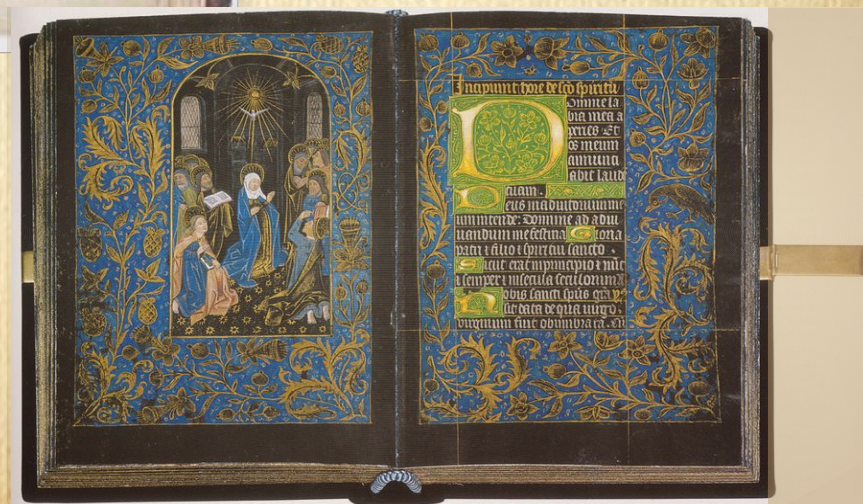 Incipiunt hore de sco spiritu
Domine la
bia mea a
peries Et
os meum
anunci
abit laude
tuam .
Deus in adiutorium me
um intende : Domine ad adiu
uandum me festina Gloria
patri & filio & spiritui sancto
Sicut erat in principio & nuc
& semper & in secula seculorum a
Nobis sancti spus gra
sit data de qua uirgo
uirginum fuit obumbrata. Cu